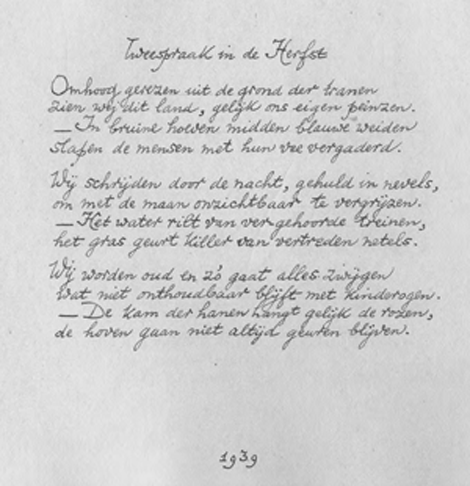 Tweespraak in de Herfst
Omhoog gerezen uit de grond der tranen
zien wij dit land, gelijk ons eigen peinzen.
— In bruine hoeven midden blauwe weiden
slapen de mensen met hun vee vergaderd.
Wij schrijden door de nacht, gehuld in nevels,
om met de maan onzichtbaar te vergrijzen.
— Het water rilt van ver gehoorde treinen,
het gras geurt killer van vertreden netels.
Wij worden oud en zó gaat alles zwijgen
wat niet onthoudbaar blijft met kinderogen.
— De kam der hanen hangt gelijk de rozen,
de hoven gaan niet altijd geuren blijven.
1939